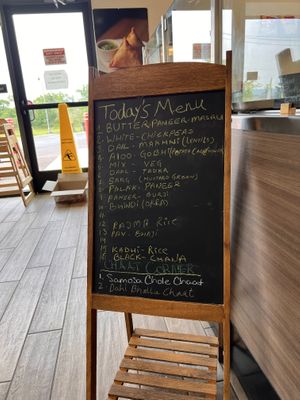 Today's Menu
1. BUTTER PANEER MASALA
2. WHITE-CHICKPEAS
3. DAL-MAKHNI (LENTILS)
4. ALOO-GOBHI
5. MIX-VEG
6. DAL-TADKA
7. SARG (MUSTARD GREEN)
8. PALAK-PANEER
9. PANEER-BURJI
10. BHINDI (OKRA)
12 RAJMA Rice
13 PAV-BHAJI
14
15 KADHI-Rice
16 BLACK-CHANA
CHAAT CORNER
1. Samosa Chole Chaat
2. Dahi Bhalla Chaat